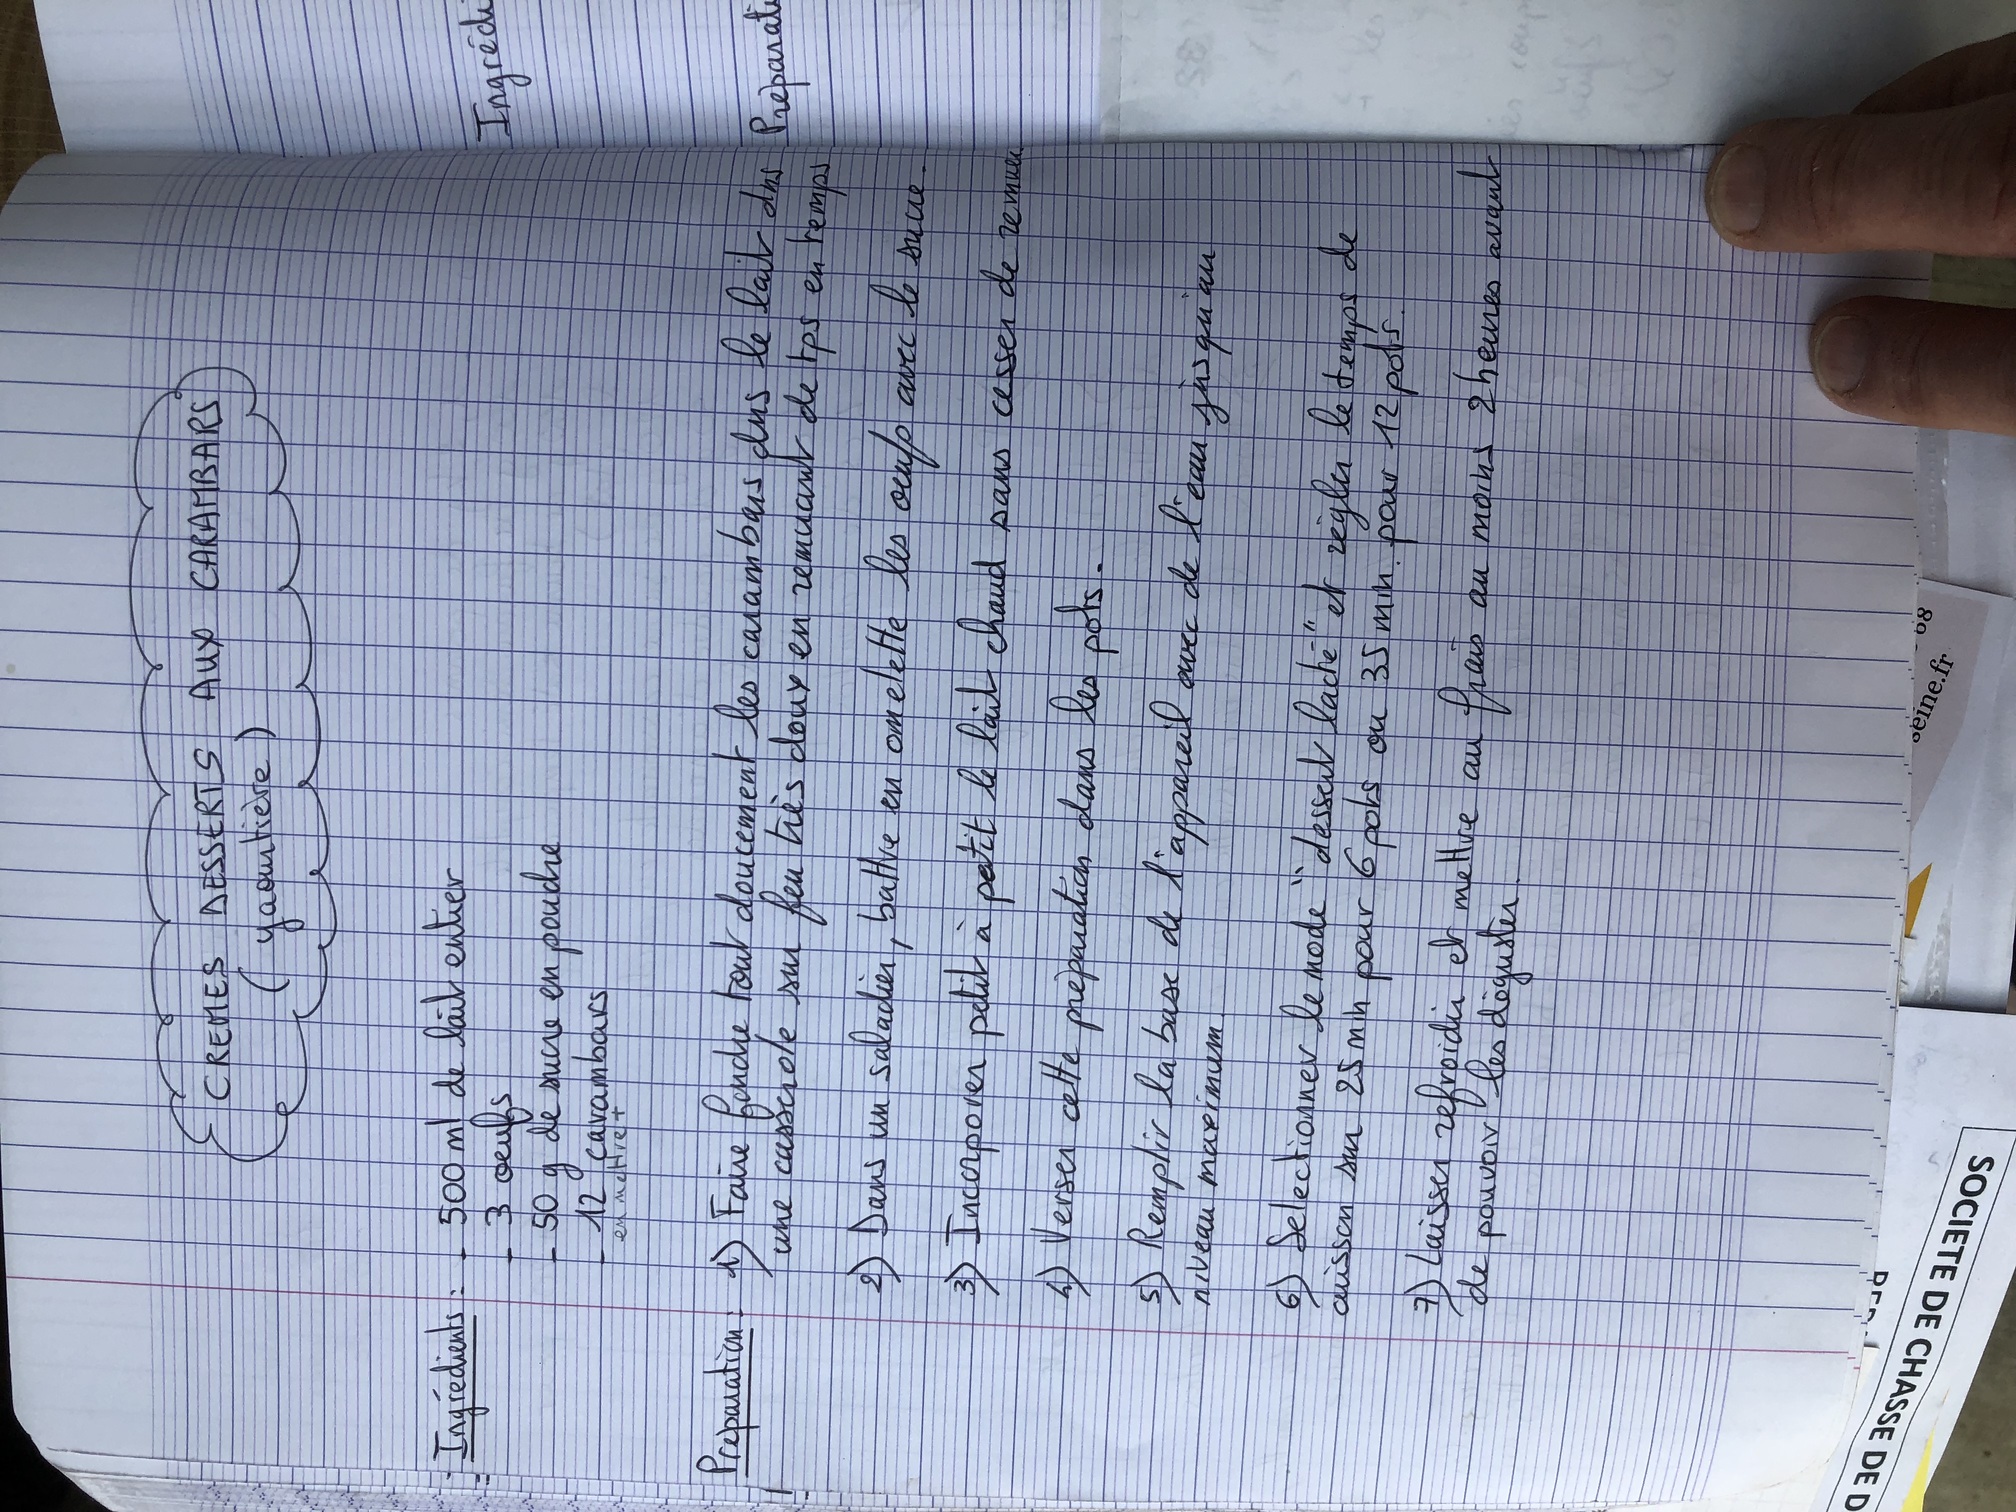 CREMES DESSERTS AUX CARAMBARS
( yaourtière )
Ingrédients : - 500 ml de lait entier
- 3 oeufs
- 50 g de sucre en poudre
- 12 carambars
en mettre +
Préparation : 1) Faire fondre tout doucement les carambars dns le lait dns
une casserole sur feu très doux en remuant de tps en temps
2) Dans un saladier, battre en omelette les oeufs avec le sucre.
3) Incorporer petit à petit le lait chaud sans cesser de remuer
4) Verser cette préparation dans les pots.
5) Remplir la base de l'appareil avec de l'eau jusqu'au
niveau maximum.
6) Selectionner le mode "dessert lacté" et régler le temps de
cuisson sur 25 min pour 6 pots ou 35 min pour 12 pots.
7) Laisser refroidir et mettre au frais au moins 2 heures avant
de pouvoir les déguster.
Ingrédi
Préparati
seine.fr
SOCIETE DE CHASSE DE D